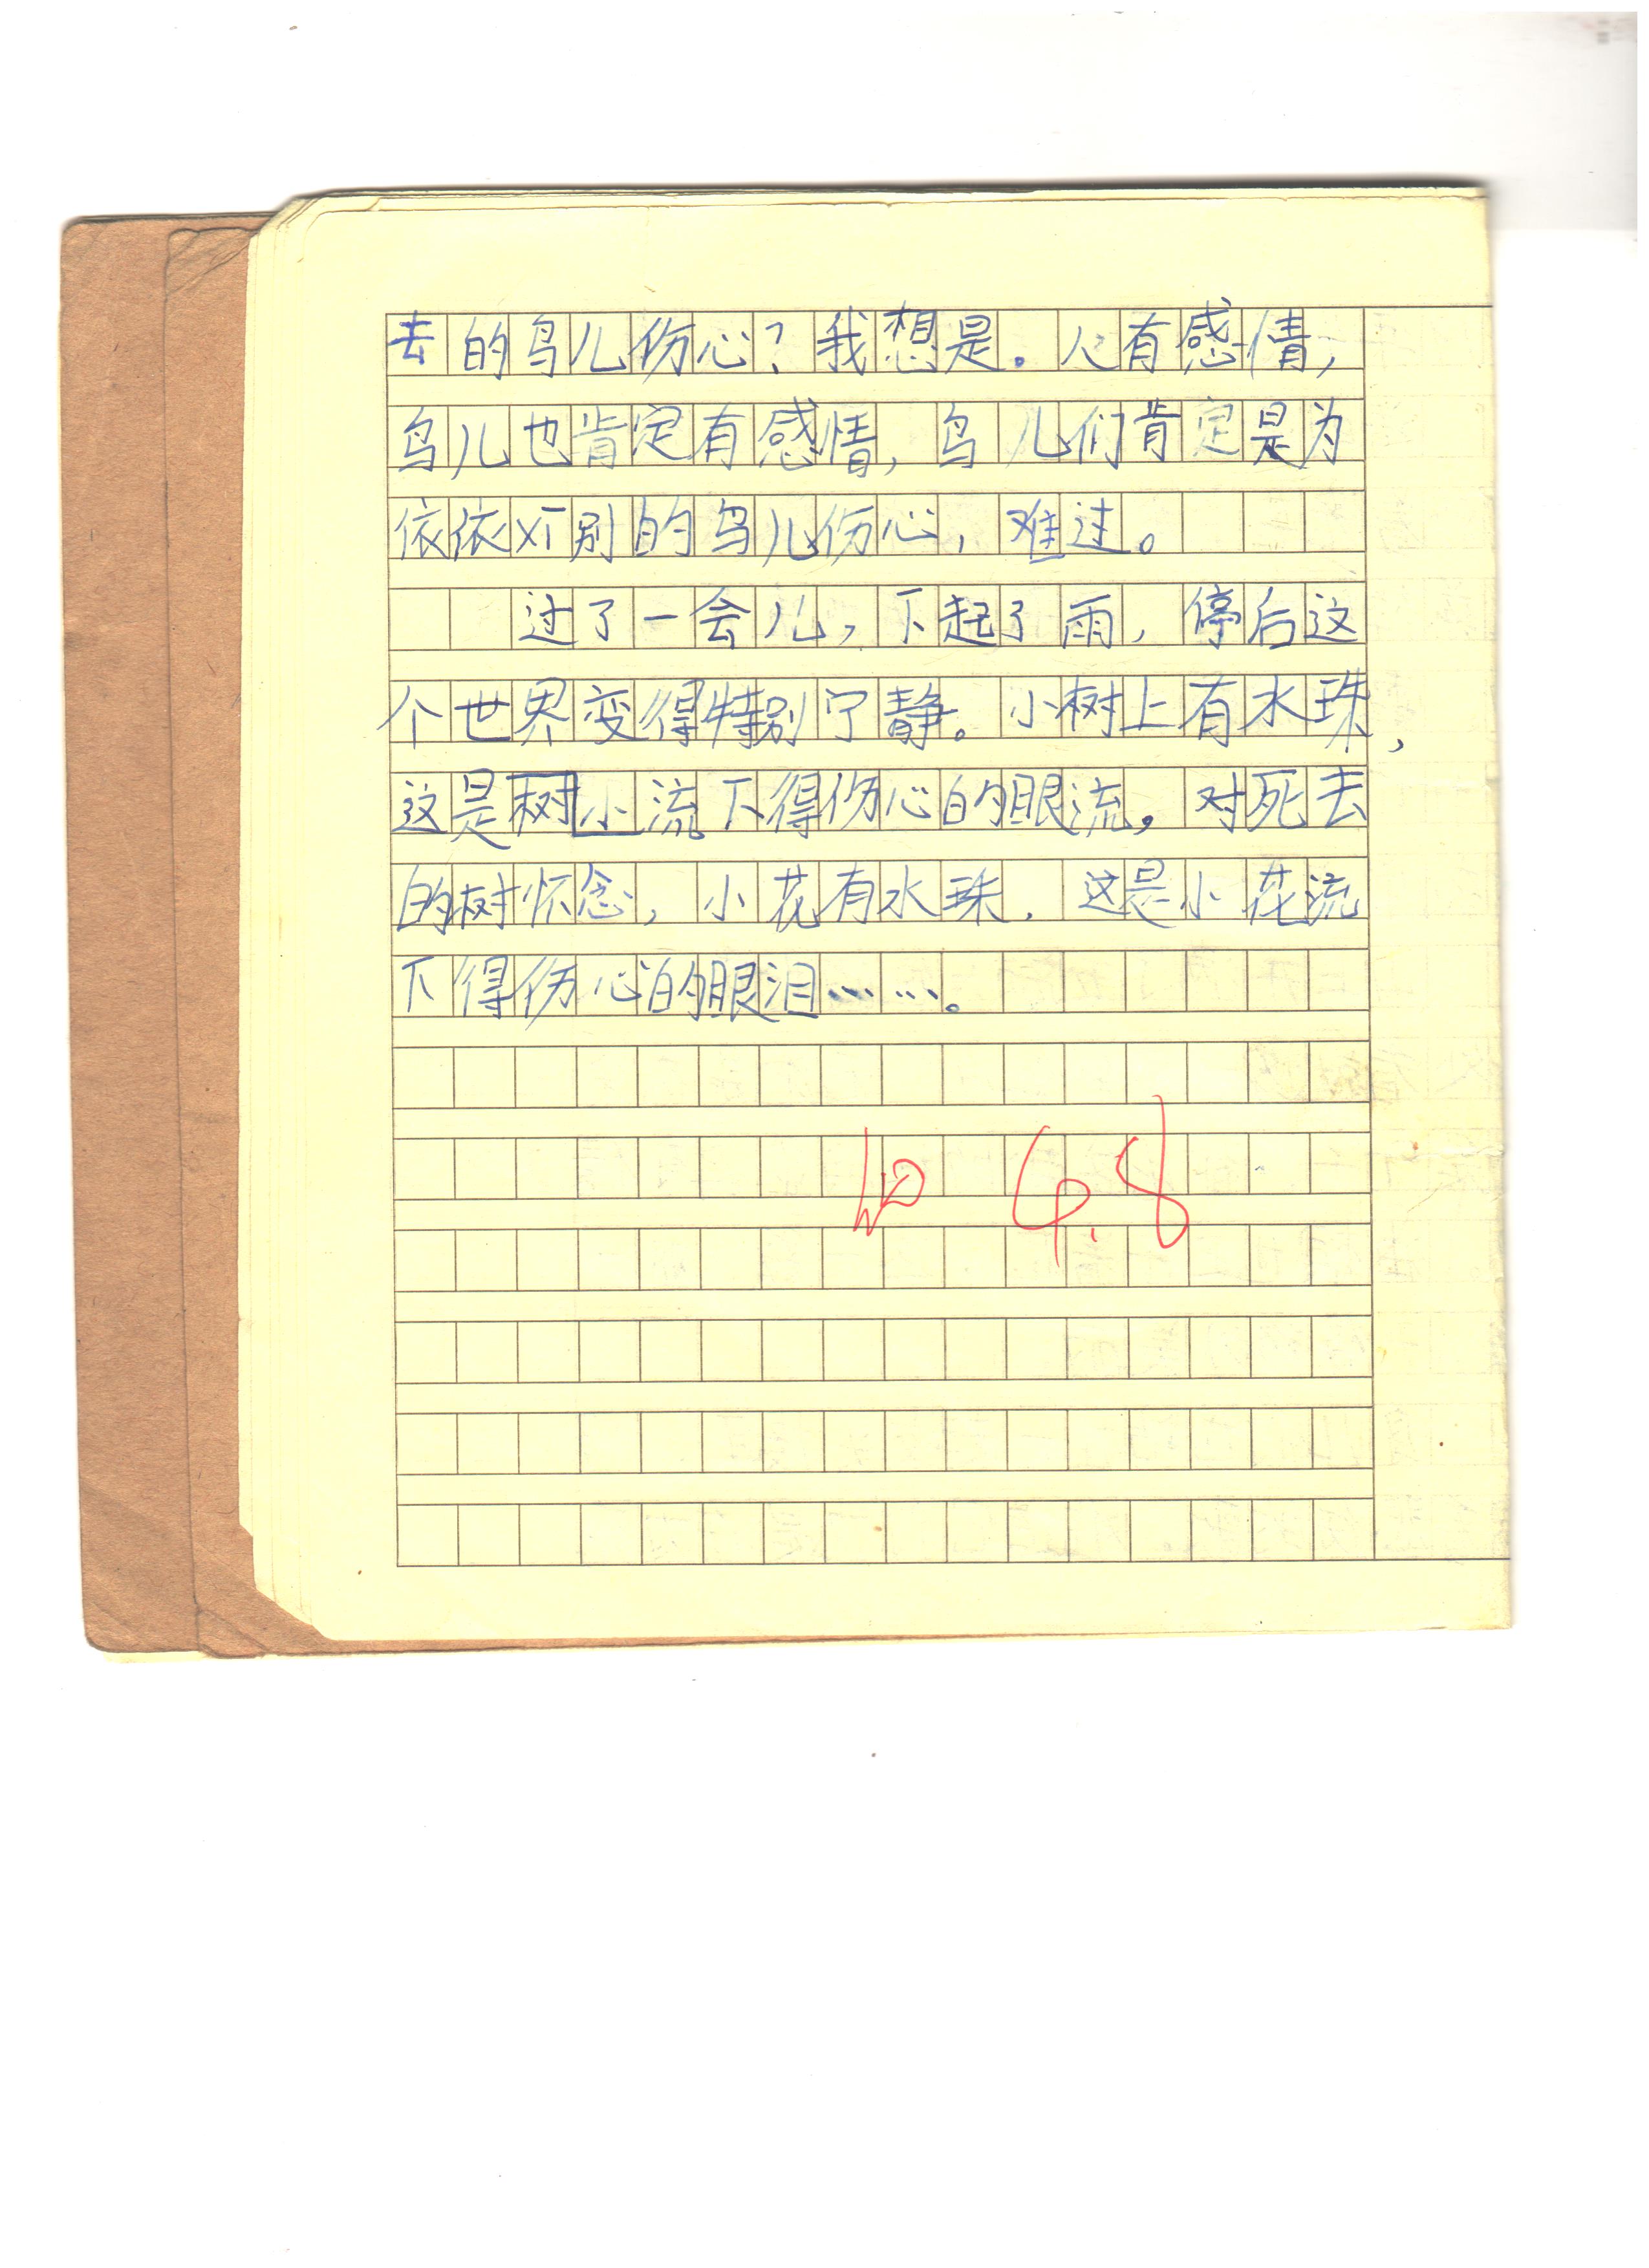 去的鸟儿伤心？我想是。人有感情，
鸟儿也肯定有感情，鸟儿们肯定是为
依依对别的鸟儿伤心，难过。
过了一会儿，下起了雨，停后这
个世界变得特别宁静。小树上有水珠，
这是树小流下得伤心的眼流，对死去
的树怀念，小花有水珠，这是小花流
下得伤心的眼泪……。
4.8